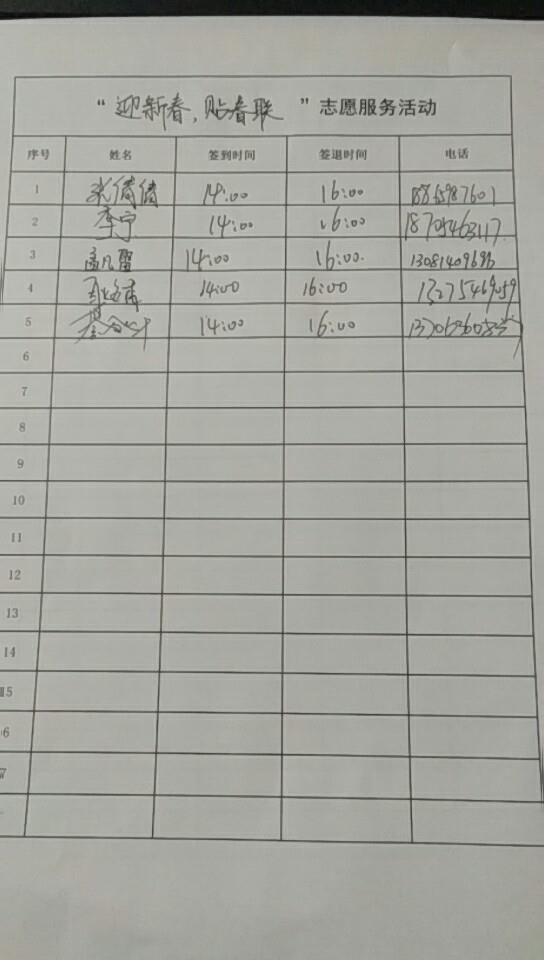 “迎新春，贴春联”志愿服务活动
序号 姓名 签到时间 签退时间 电话
1 张倩倩 14:00 16:00
2 李宁 14:00 16:00 18705463117
3 孟凡磊 14:00 16:00. 13081409696
4 14:00 16:00 13275469059
5 14:00 16:00
6
7
8
9
10
11
12
13
14
15
6
7